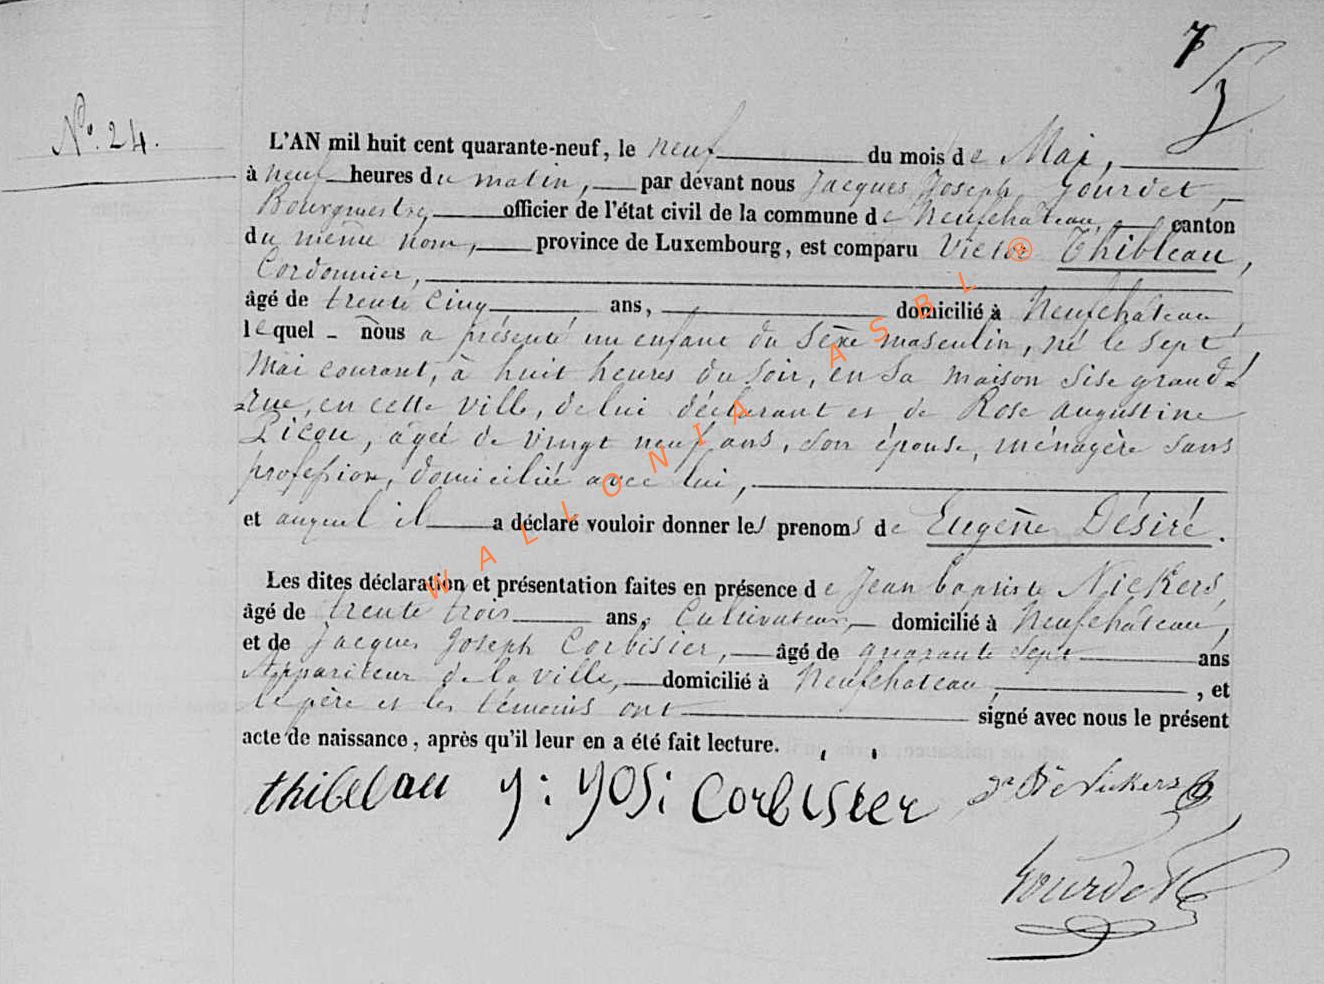 7
N° 24.
L'AN mil huit cent quarante-neuf, le neuf du mois de Mai,
à neuf heures du matin, par devant nous Jacques Joseph Gourdet,
Bourgmestre, officier de l'état civil de la commune de Neufchâteau, canton
du même nom, province de Luxembourg, est comparu Victor Thibleau,
Cordonnier,
âgé de trente cinq ans, domicilié à Neufchâteau,
lequel - nous a présenté un enfant du sexe masculin, né le sept
Mai courant, à huit heures du soir, en sa maison sise grand'
rue, en cette ville, de lui déclarant et de Rose Augustine
Picou, âgée de vingt neuf ans, son épouse, ménagère sans
profession, domiciliée avec lui,
et auquel il a déclaré vouloir donner les prenoms de Eugène Désiré.
Les dites déclaration et présentation faites en présence de Jean baptiste Nickers,
âgé de trente trois ans, Cultivateur, domicilié à Neufchâteau,
et de Jacques Joseph Corbisier, âgé de quarante sept ans
Appariteur de la ville, domicilié à Neufchateau, , et
le père et les témoins ont signé avec nous le présent
acte de naissance, après qu'il leur en a été fait lecture.
thibelau J: JOS: Corbisier Nickers
Gourdet
WALLONIA ASBL ®